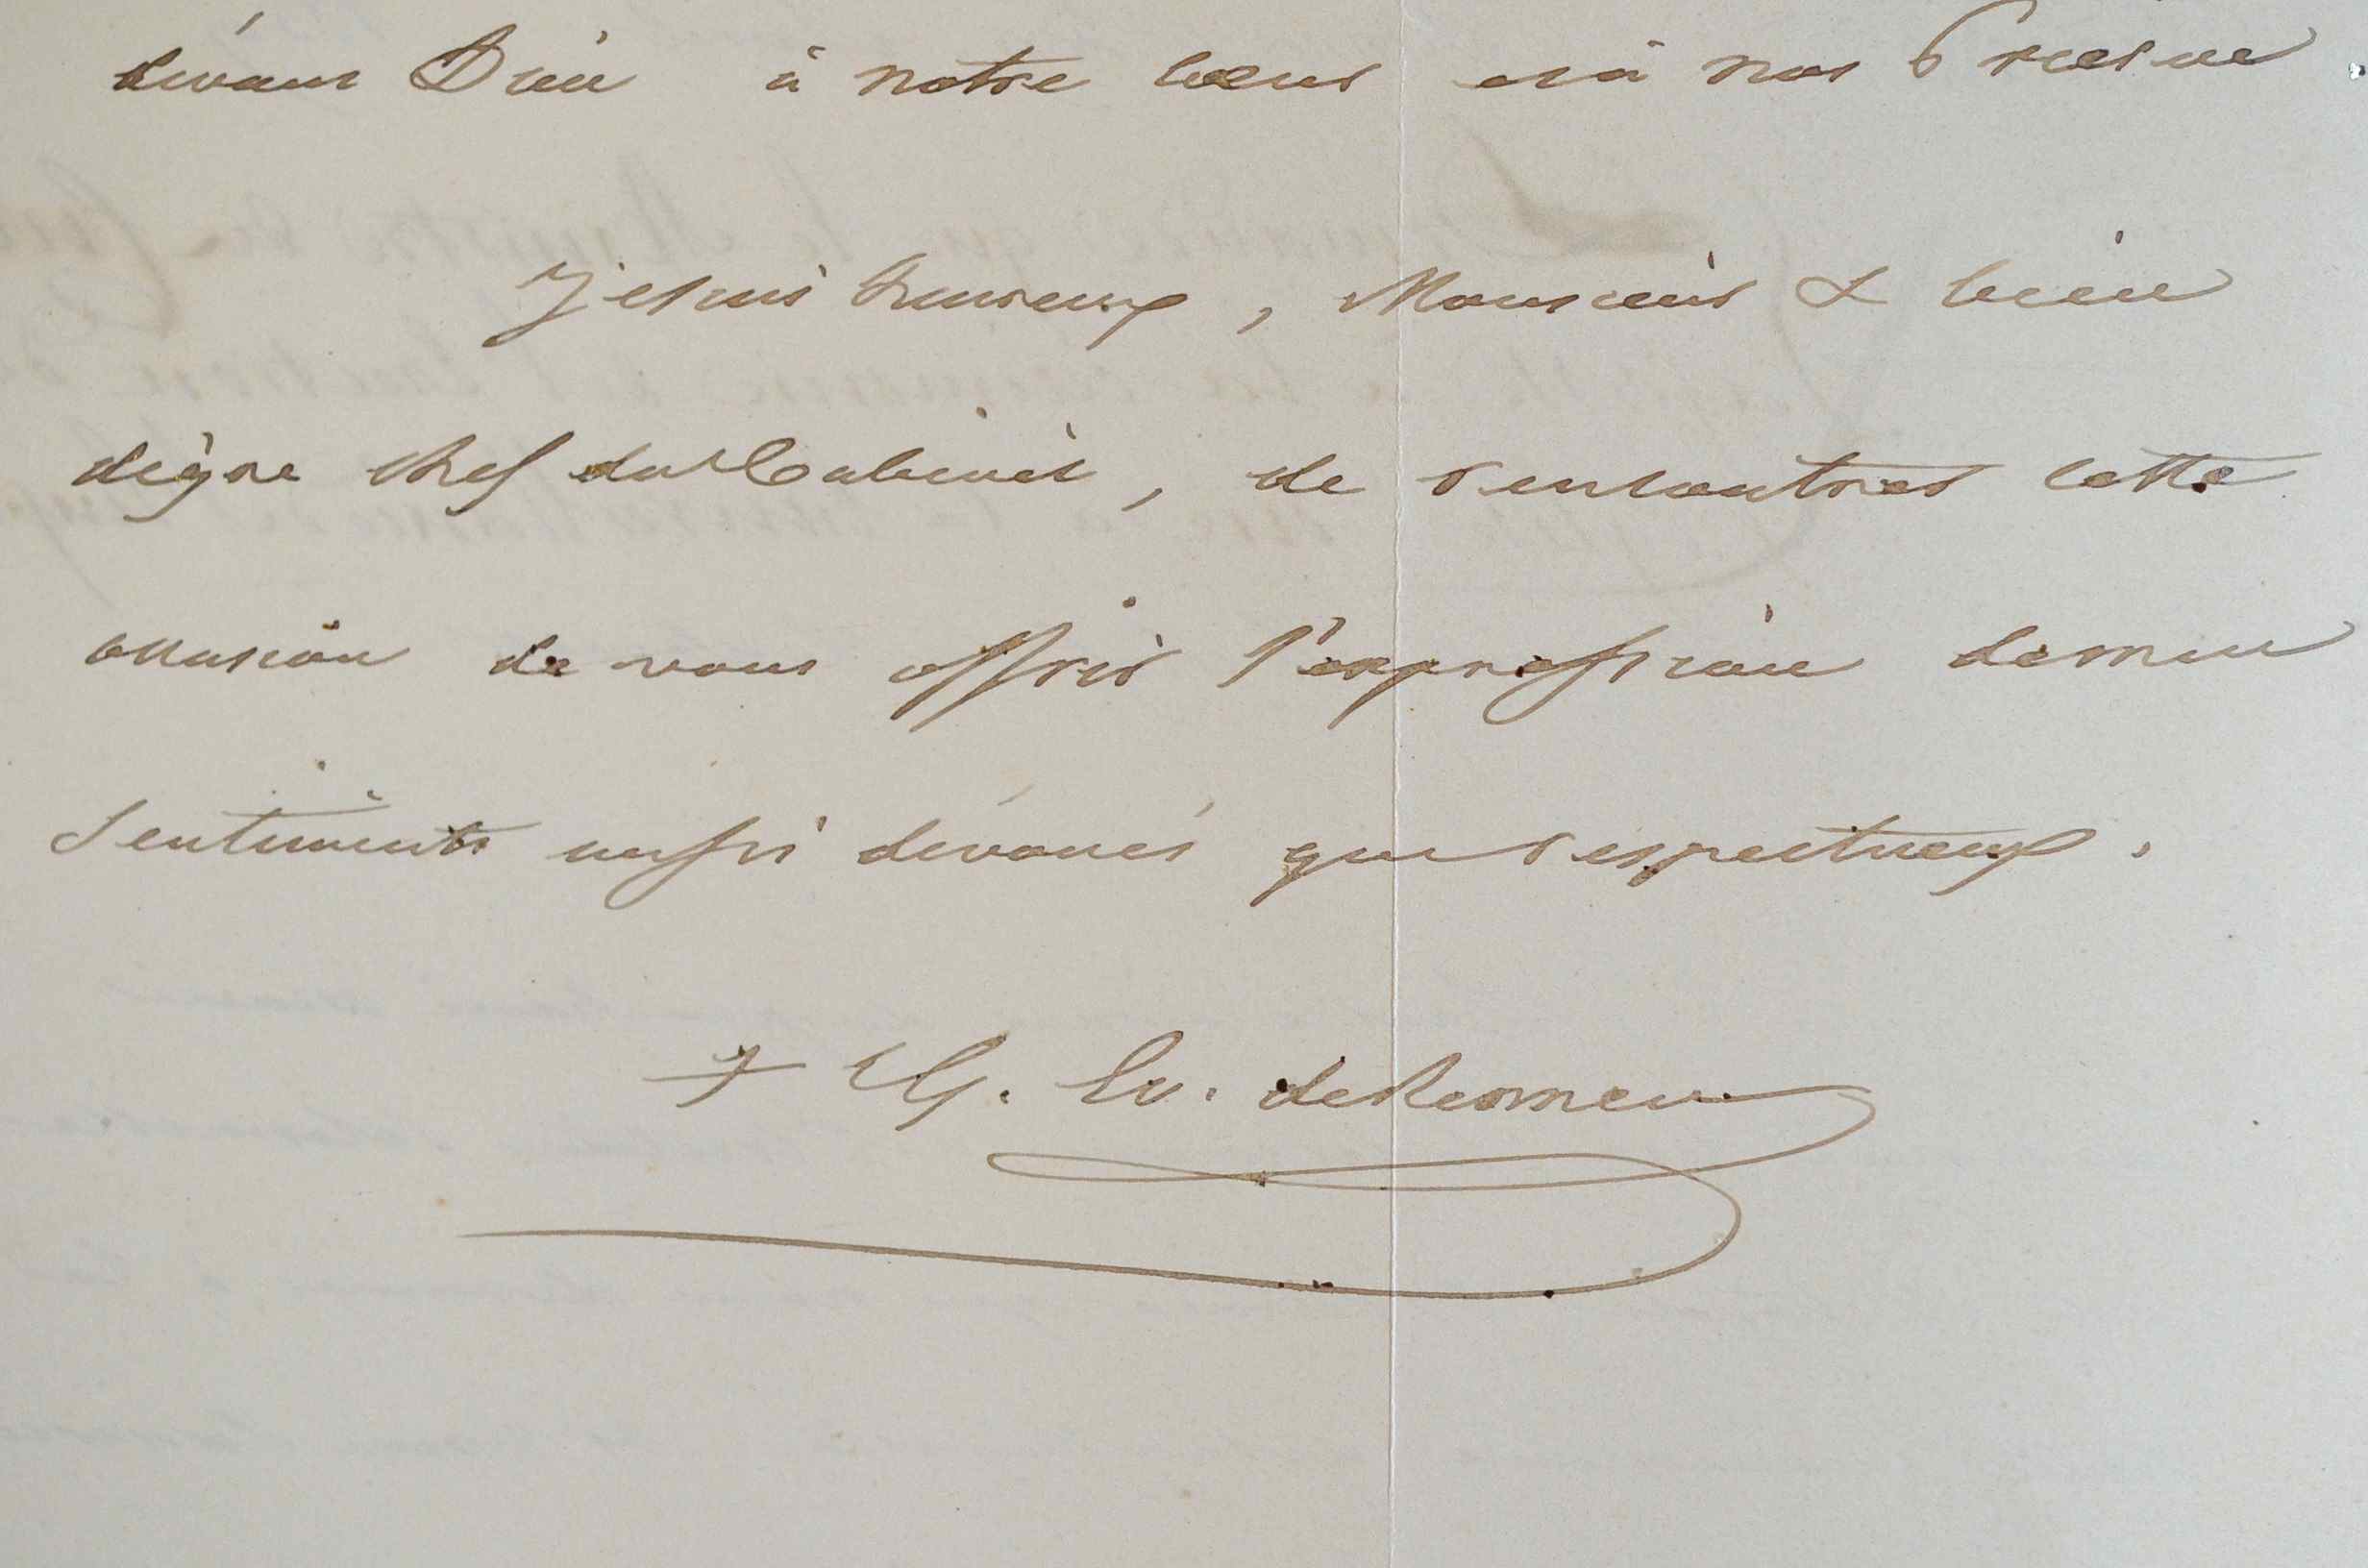 devant Dieu à notre cœur et à nos Prières.
Je suis heureux, Monsieur & bien
digne chef du Cabinet, de rencontrer cette
occasion de vous offrir l'expression de mes
sentiments aussi dévoués que respectueux.
† Ev. de